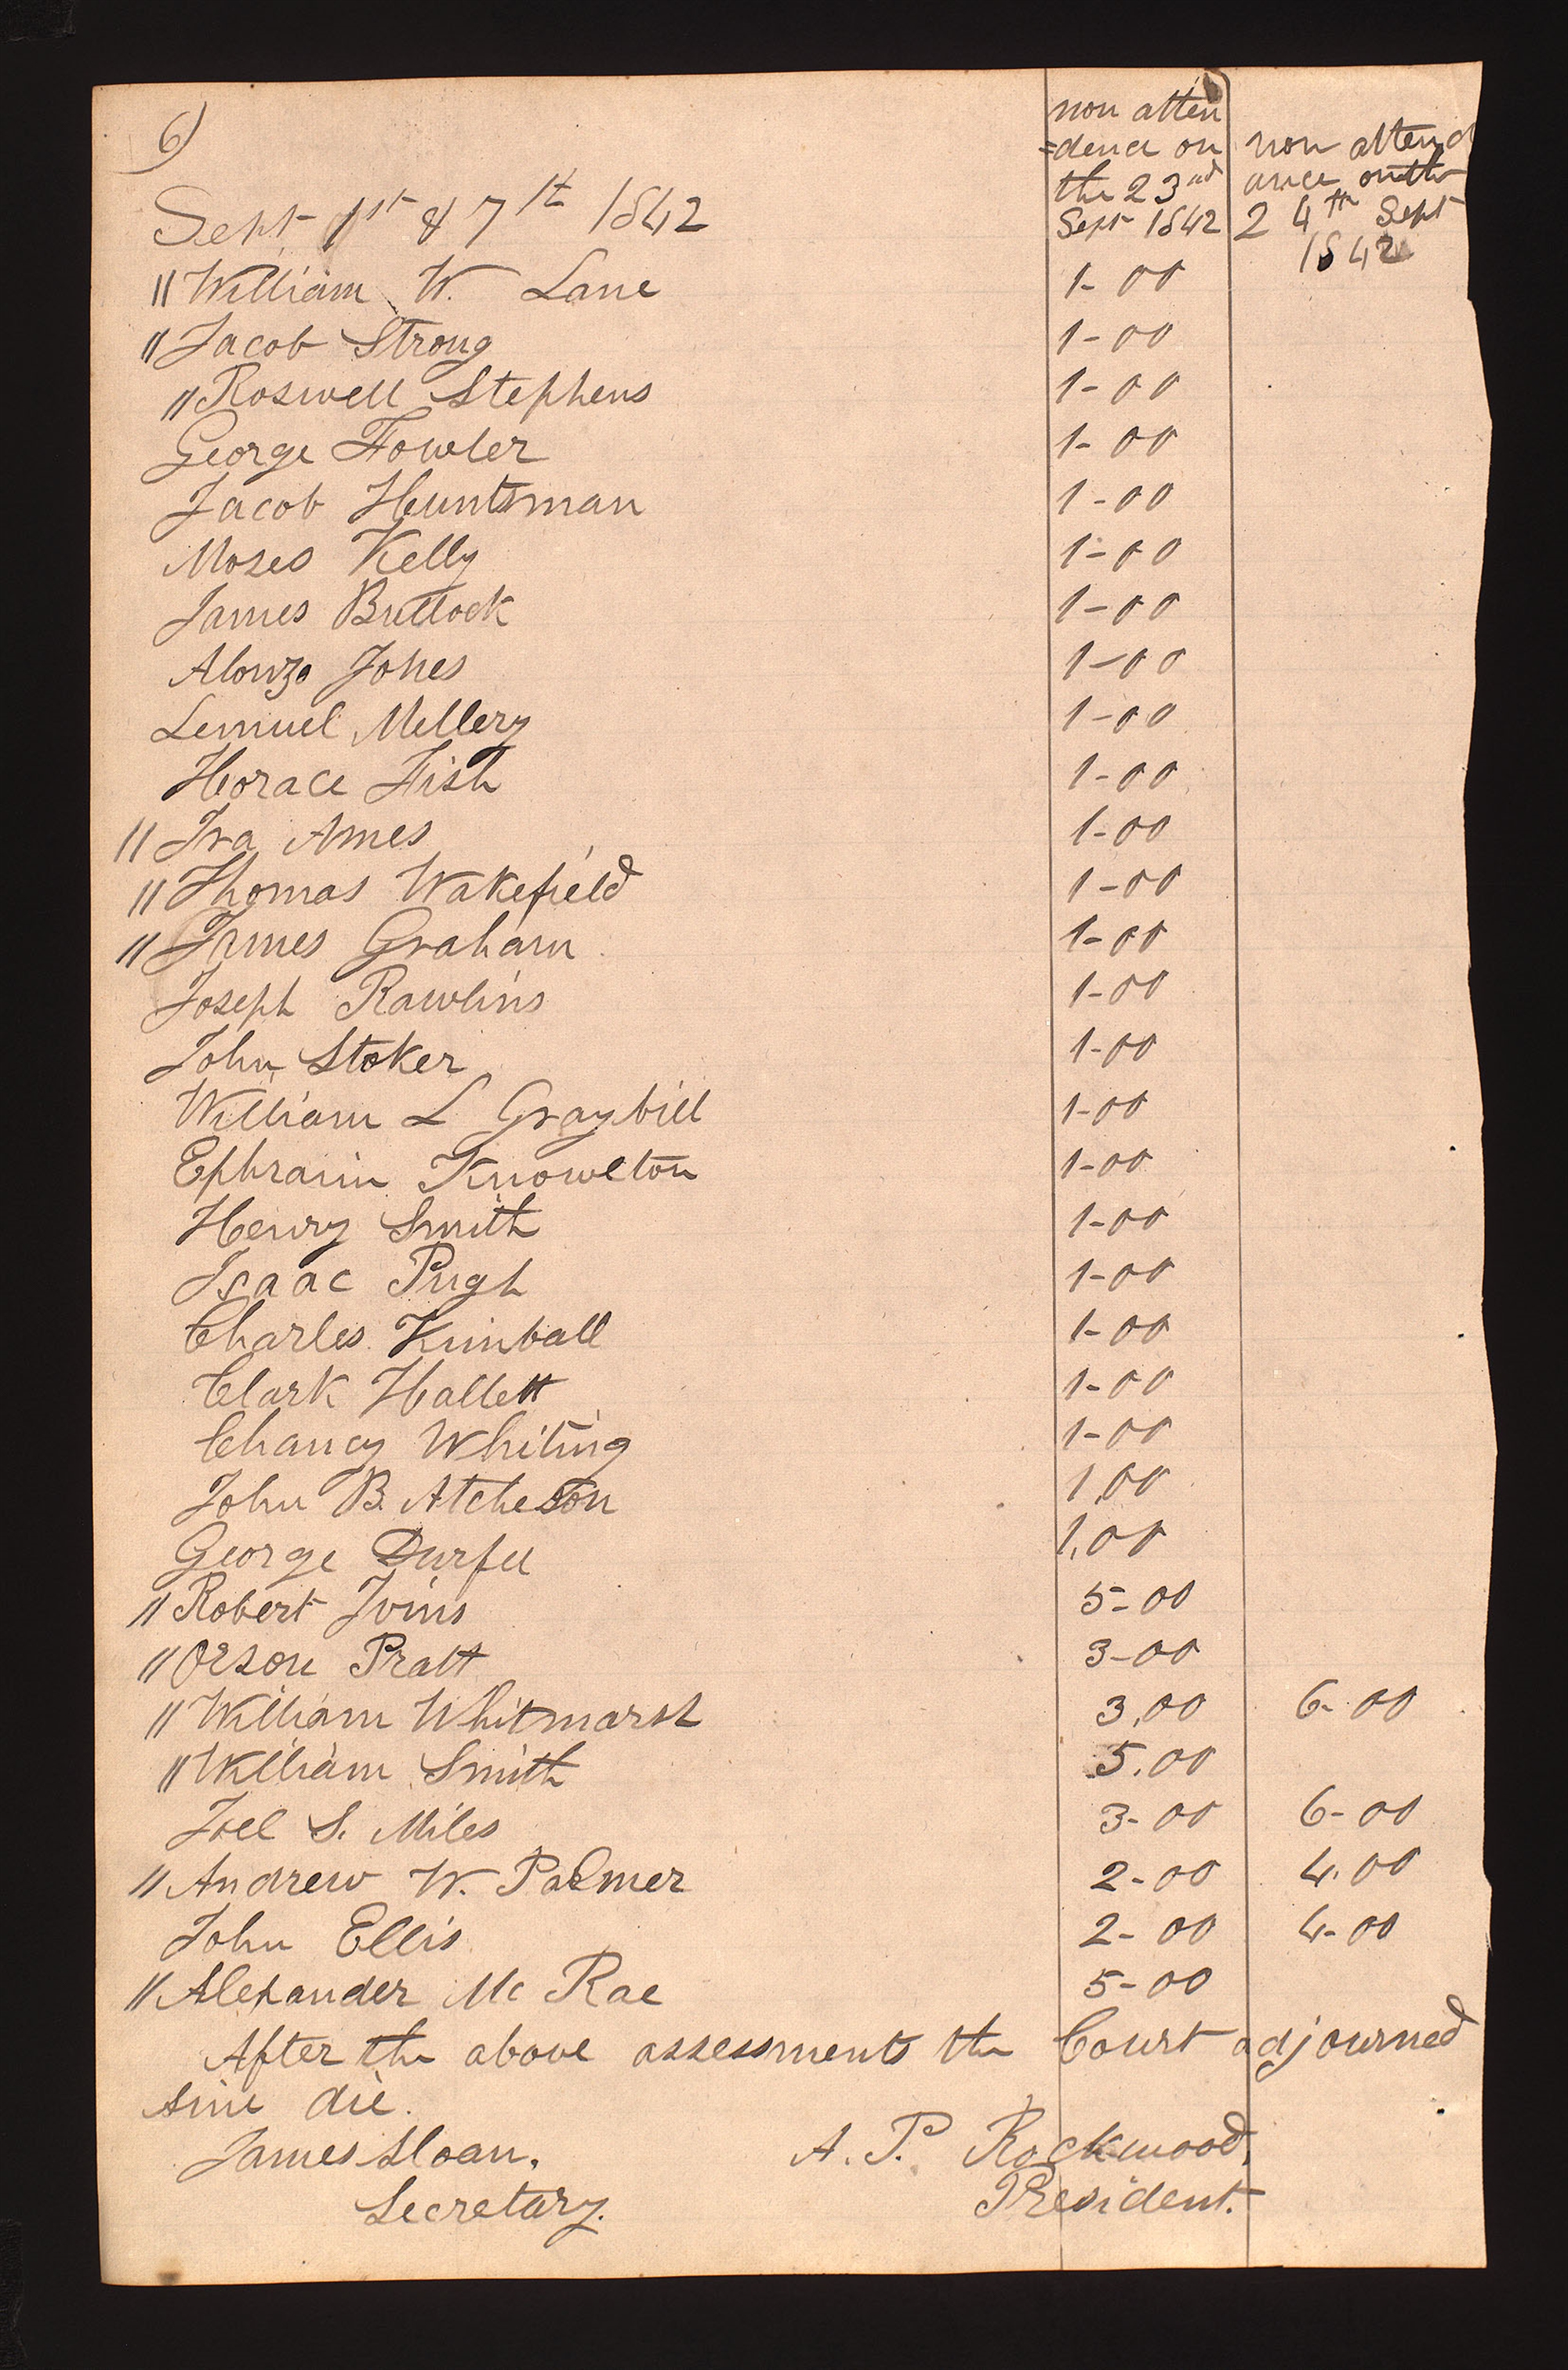 6)
non atten
=dence on
the 23rd
Sept 1842
non attend
ance on the
24th Sept
1842
Sept 1st & 7th 1842
" William W. Lane 1-00
" Jacob Strong 1-00
" Roswell Stephens 1-00
George Fowler 1-00
Jacob Huntsman 1-00
Moses Kelly 1-00
James Bullock 1-00
Alonzo Jones 1-00
Lemuel Mellery 1-00
Horace Fish 1-00
" Ira Ames 1-00
" Thomas Wakefield 1-00
" James Graham 1-00
Joseph Rawlins 1-00
John Stoker 1-00
William L Graybill 1-00
Ephraim Knowlton 1-00
Henry Smith 1-00
Isaac Pugh 1-00
Charles Kimball 1-00
Clark Hallett 1-00
Chancy Whiting 1-00
John B. Atcheson 1,00
George Durfee 1,00
" Robert Ivins 5-00
" Orson Pratt 3-00
" William Whitmarsh 3,00 6-00
" William Smith 5.00
Joel S. Miles 3-00 6-00
" Andrew W. Palmer 2-00 4.00
John Ellis 2-00 4-00
" Alexander Mc Rae 5-00
After the above assessments the Court adjourned
sine die.
James Sloan. A. P. Rockwood,
Secretary. President.